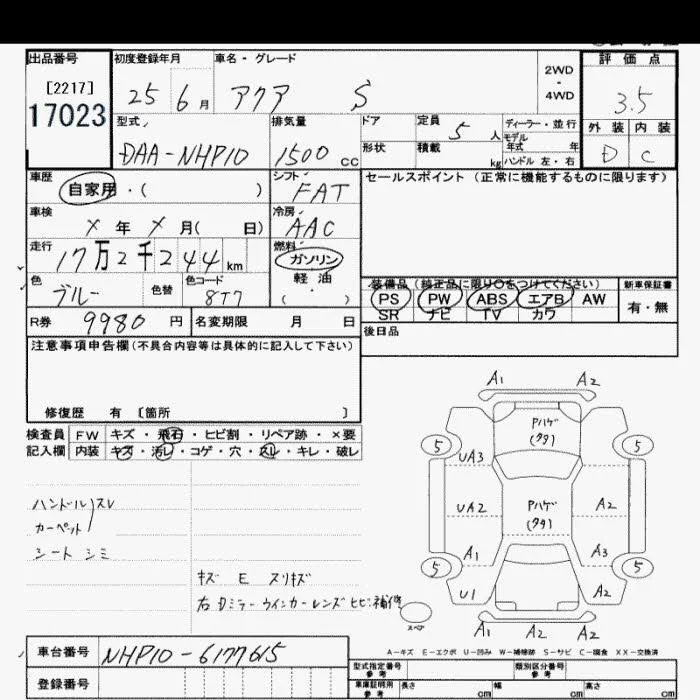 出品番号 初度登録年月 車名・グレード 評価点
[2217] 25 6月 アクア S 2WD・4WD 3.5
17023
型式 排気量 ドア 定員 5人 ディーラー・並行 外装 内装
DAA-NHP10 1500cc 形状 積載 kg モデル年式 年 ハンドル 左・右 D C
車歴 自家用・( ) シフト FAT セールスポイント(正常に機能するものに限ります)
車検 X年X月( 日) 冷房 AAC
走行 17万2千244km 燃料 ガソリン
色 ブルー 色替 色コード 8T7 軽油・( )
装備品(純正品に限り○をつけてください) 新車保証書
PS PW ABS エアB AW 有・無
SR ナビ TV カワ
R券 9980円 名変期限 月 日 後日品
注意事項申告欄(不具合内容等は具体的に記入して下さい)
修復歴 有 [箇所 ]
検査員 FW キズ・飛石・ヒビ割・リペア跡・×要
記入欄 内装 キズ・汚レ・コゲ・穴・スレ・キレ・破レ
ハンドルスレ
カーペット
シート シミ
キズ E スリキズ
右Dミラーウインカーレンズヒビ補修
A1 A2
Pハゲ
(タタ)
5 5
UA3
UA2 Pハゲ A2
(タタ)
A1 A3
5 5
U1 A2
スペア A1 A2 A2
A-キズ E-エクボ U-凹み W-補修跡 S-サビ C-腐食 XX-交換済
車台番号 NHP10-6177615
登録番号
型式指定番号 参考 類別区分番号 参考
車庫証明用 参考 長さ cm 幅 cm 高さ cm